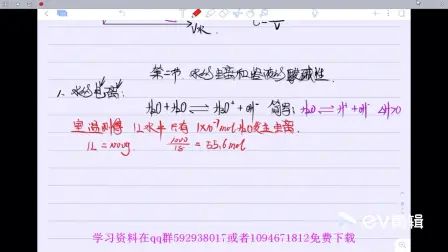 V水
V
第二节 水的电离和溶液的酸碱性
1. 水的电离
H₂O + H₂O ⇌ H₃O⁺ + OH⁻ 简写: H₂O ⇌ H⁺ + OH⁻ ΔH>0
室温测得 1L水中只有 1×10⁻⁷mol H₂O发生电离.
1L = 1000g 1000/18 = 55.6mol
EV剪辑
学习资料在qq群592938017或者1094671812免费下载